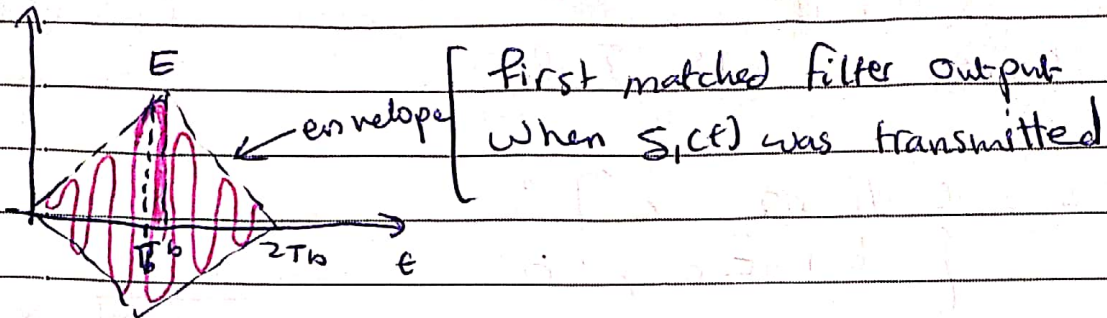 E
envelope
first matched filter output
when S₁(t) was transmitted
Tb
2Tb
t